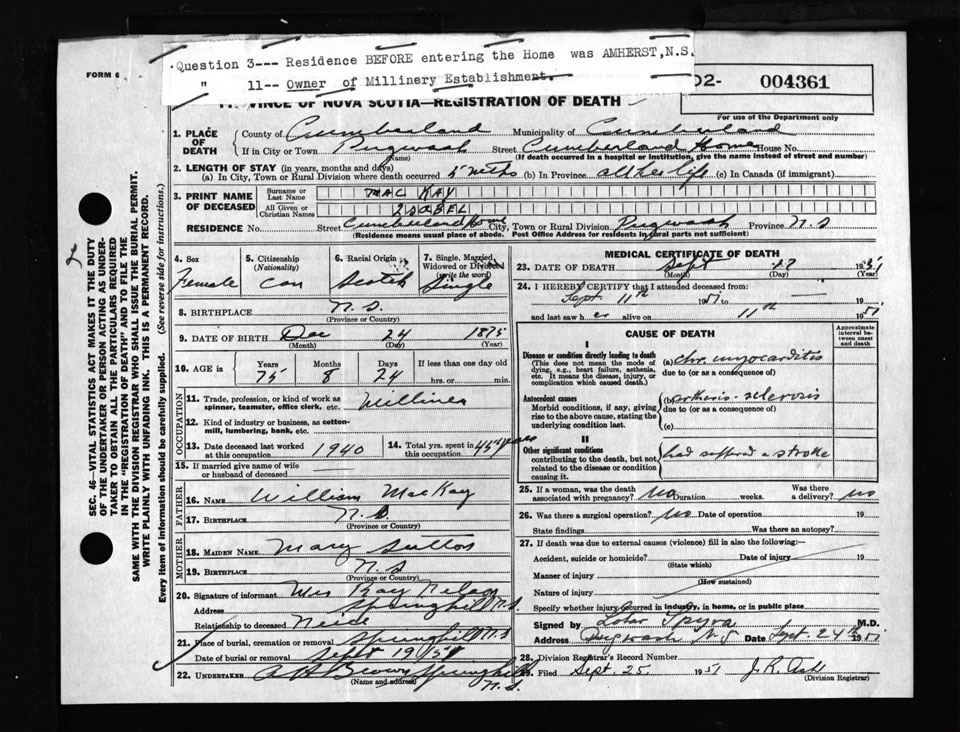 Question 3--- Residence BEFORE entering the Home was AMHERST,N.S.
" 11-- Owner of Millinery Establishment.
FORM 6
004361
VINCE OF NOVA SCOTIA—REGISTRATION OF DEATH
For use of the Department only
1. PLACE OF DEATH County of Cumberland Municipality of Cumberland
If in City or Town Pugwash (Name) Street Cumberland Home House No.
(If death occurred in a hospital or institution, give the name instead of street and number)
2. LENGTH OF STAY (in years, months and days)
(a) In City, Town or Rural Division where death occurred 5 mths (b) In Province all her life (c) In Canada (if immigrant)
3. PRINT NAME OF DECEASED Surname or Last Name MAC KAY
All Given or Christian Names ISABEL
RESIDENCE No. Street Cumberland Home City, Town or Rural Division Pugwash Province N.S
(Residence means usual place of abode. Post Office Address for residents in rural parts not sufficient)
4. Sex Female
5. Citizenship (Nationality) Can
6. Racial Origin Scotch
7. Single, Married, Widowed or Divorced (write the word) Single
8. BIRTHPLACE N.S. (Province or Country)
9. DATE OF BIRTH Dec (Month) 24 (Day) 1875 (Year)
10. AGE Years 75 Months 8 Days 24 If less than one day old hrs. or min.
OCCUPATION
11. Trade, profession, or kind of work as spinner, teamster, office clerk, etc. Milliner
12. Kind of industry or business, as cotton-mill, lumbering, bank, etc.
13. Date deceased last worked at this occupation 1940
14. Total yrs. spent in this occupation 45 years
15. If married give name of wife or husband of deceased
FATHER
16. NAME William MacKay
17. BIRTHPLACE N.S. (Province or Country)
MOTHER
18. MAIDEN NAME Mary Sutton
19. BIRTHPLACE N.S (Province or Country)
20. Signature of informant Mrs Ray Nelson
Address Springhill N.S.
Relationship to deceased Neice
21. Place of burial, cremation or removal Springhill N.S
Date of burial or removal Sept 19/51
22. UNDERTAKER A H Brown Springhill N.S.
(Name and address)
MEDICAL CERTIFICATE OF DEATH
23. DATE OF DEATH Sept (Month) 17 (Day) 1951 (Year)
24. I HEREBY CERTIFY that I attended deceased from:
Sept. 11th 1951 to 19
and last saw her alive on 11th 1951
CAUSE OF DEATH
Approximate interval between onset and death
I
Disease or condition directly leading to death
(This does not mean the mode of dying, e.g., heart failure, asthenia, etc. It means the disease, injury, or complication which caused death.)
(a) chr. myocarditis
due to (or as a consequence of)
Antecedent causes
Morbid conditions, if any, giving rise to the above cause, stating the underlying condition last.
(b) arterio-sclerosis
due to (or as a consequence of)
(c)
II
Other significant conditions
contributing to the death, but not related to the disease or condition causing it.
had suffered a stroke
25. If a woman, was the death associated with pregnancy? No Duration weeks. Was there a delivery? No
26. Was there a surgical operation? No Date of operation 19
State findings Was there an autopsy?
27. If death was due to external causes (violence) fill in also the following:—
Accident, suicide or homicide? Date of injury 19
(State which)
Manner of injury
(How sustained)
Nature of injury
Specify whether injury occurred in industry, in home, or in public place
Signed by Lothar Spyra M.D.
Address Pugwash N.S Date Sept. 24th 1951
28. Division Registrar's Record Number
29. Filed Sept. 25. 1951 J. R. Ash
(Division Registrar)
SEC. 46—VITAL STATISTICS ACT MAKES IT THE DUTY
OF THE UNDERTAKER OR PERSON ACTING AS UNDER-
TAKER TO OBTAIN ALL THE PARTICULARS REQUIRED
IN THE "REGISTRATION OF DEATH" AND TO FILE THE
SAME WITH THE DIVISION REGISTRAR WHO SHALL ISSUE THE BURIAL PERMIT.
WRITE PLAINLY WITH UNFADING INK. THIS IS A PERMANENT RECORD.
Every item of information should be carefully supplied. (See reverse side for instructions.)